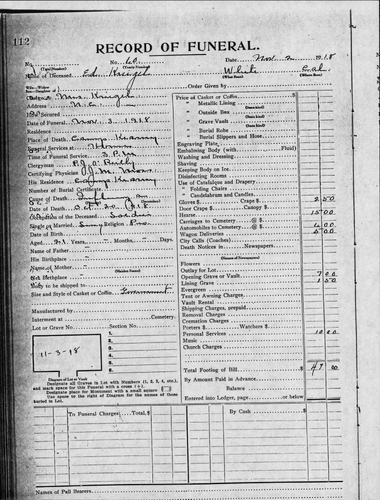 112
RECORD OF FUNERAL.
No. No. 60 Date Nov. 2 1918
(Total Number) (Yearly Number)
Name of Deceased Ed. Krieger White Cal.
(What Race) (Where Born)
Charge Mrs. Krieger Order Given by
Address N.C.
Secured
Date of Funeral Nov. 3. 1918
Residence
Place of Death Camp Kearny
Funeral Services at Home
Time of Funeral Service 3 P.M.
Clergyman P.J. O'Reily
Certifying Physician J.J.M. Moss
His Residence Camp Kearny
Number of Burial Certificate
Cause of Death Infl
Date of Death Oct 30 1918
Occupation of the Deceased Soldier
Single or Married Sing Religion Pro.
Date of Birth
Aged 21 Years, Months, Days
Name of Father
His Birthplace
Name of Mother
(Maiden Name)
Her Birthplace
Body to be shipped to
Size and Style of Casket or Coffin Government
Manufactured by
Interment at Cemetery.
Lot or Grave No. Section No.
11-3-18
Diagram of Lot or Vault
Designate all Graves in Lot with Numbers (1, 2, 3, 4, etc.),
and mark space for this Funeral with a cross (+).
Designate place for Monument with a small square
Use space to the right of Diagram for the names of those
buried in Lot.
Price of Casket or Coffin
" Metallic Lining
" Outside Box
" Grave Vault
" Burial Robe
" Burial Slippers and Hose
Engraving Plate
Embalming Body (with Fluid)
Washing and Dressing
Shaving
Keeping Body on Ice
Disinfecting Rooms
Use of Catafalque and Drapery
" Folding Chairs
" Candelabrum and Candles
Gloves $ Crape $ 2 50
Door Crape $ Canopy $
Hearse 15 00
Carriages to Cemetery @ $
Automobiles to Cemetery @ $ 6 00
Wagon Deliveries 5 00
City Calls (Coaches)
Death Notices in Newspapers
Flowers
Outlay for Lot
Opening Grave or Vault 7 00
Lining Grave 1 50
Evergreen
Tent or Awning Charges
Vault Rental
Shipping Charges, prepaid
Removal Charges
Cremation Charges
Porters $ Watchers $
Personal Services 10 00
Music
Church Charges
Total Footing of Bill $ 47 00
By Amount Paid in Advance
Balance
Entered into Ledger, page or below
To Funeral Charges Total, $ By Cash $
Names of Pall Bearers